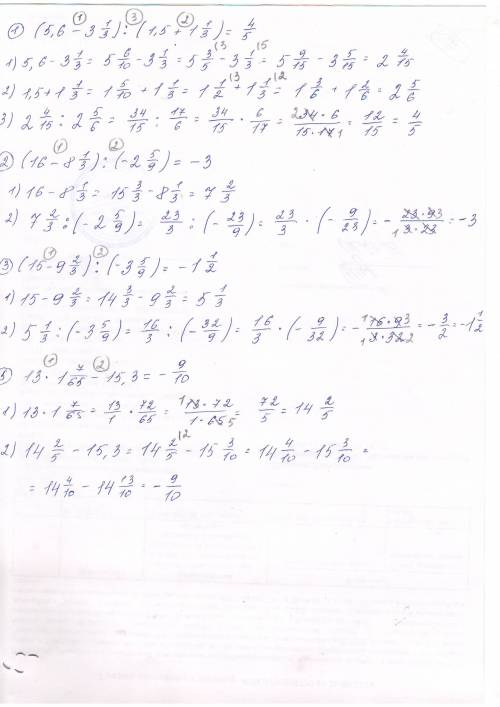 ① (5,6 - 3 1/3) : (1,5 + 1 1/3) = 4/5
1) 5,6 - 3 1/3 = 5 6/10 - 3 1/3 = 5 3/5 - 3 1/3 = 5 9/15 - 3 5/15 = 2 4/15
2) 1,5 + 1 1/3 = 1 5/10 + 1 1/3 = 1 1/2 + 1 1/3 = 1 3/6 + 1 2/6 = 2 5/6
3) 2 4/15 : 2 5/6 = 34/15 : 17/6 = 34/15 · 6/17 = 34·6/15·17 = 12/15 = 4/5
② (16 - 8 1/3) : (-2 5/9) = -3
1) 16 - 8 1/3 = 15 3/3 - 8 1/3 = 7 2/3
2) 7 2/3 : (-2 5/9) = 23/3 : (-23/9) = 23/3 · (-9/23) = - 23·9/3·23 = -3
③ (15 - 9 2/3) : (-3 5/9) = -1 1/2
1) 15 - 9 2/3 = 14 3/3 - 9 2/3 = 5 1/3
2) 5 1/3 : (-3 5/9) = 16/3 : (-32/9) = 16/3 · (-9/32) = - 16·9/3·32 = -3/2 = -1 1/2
13 · 1 7/65 - 15,3 = -9/10
1) 13 · 1 7/65 = 13/1 · 72/65 = 13·72/1·65 = 72/5 = 14 2/5
2) 14 2/5 - 15,3 = 14 2/5 - 15 3/10 = 14 4/10 - 15 3/10 =
= 14 4/10 - 14 13/10 = -9/10